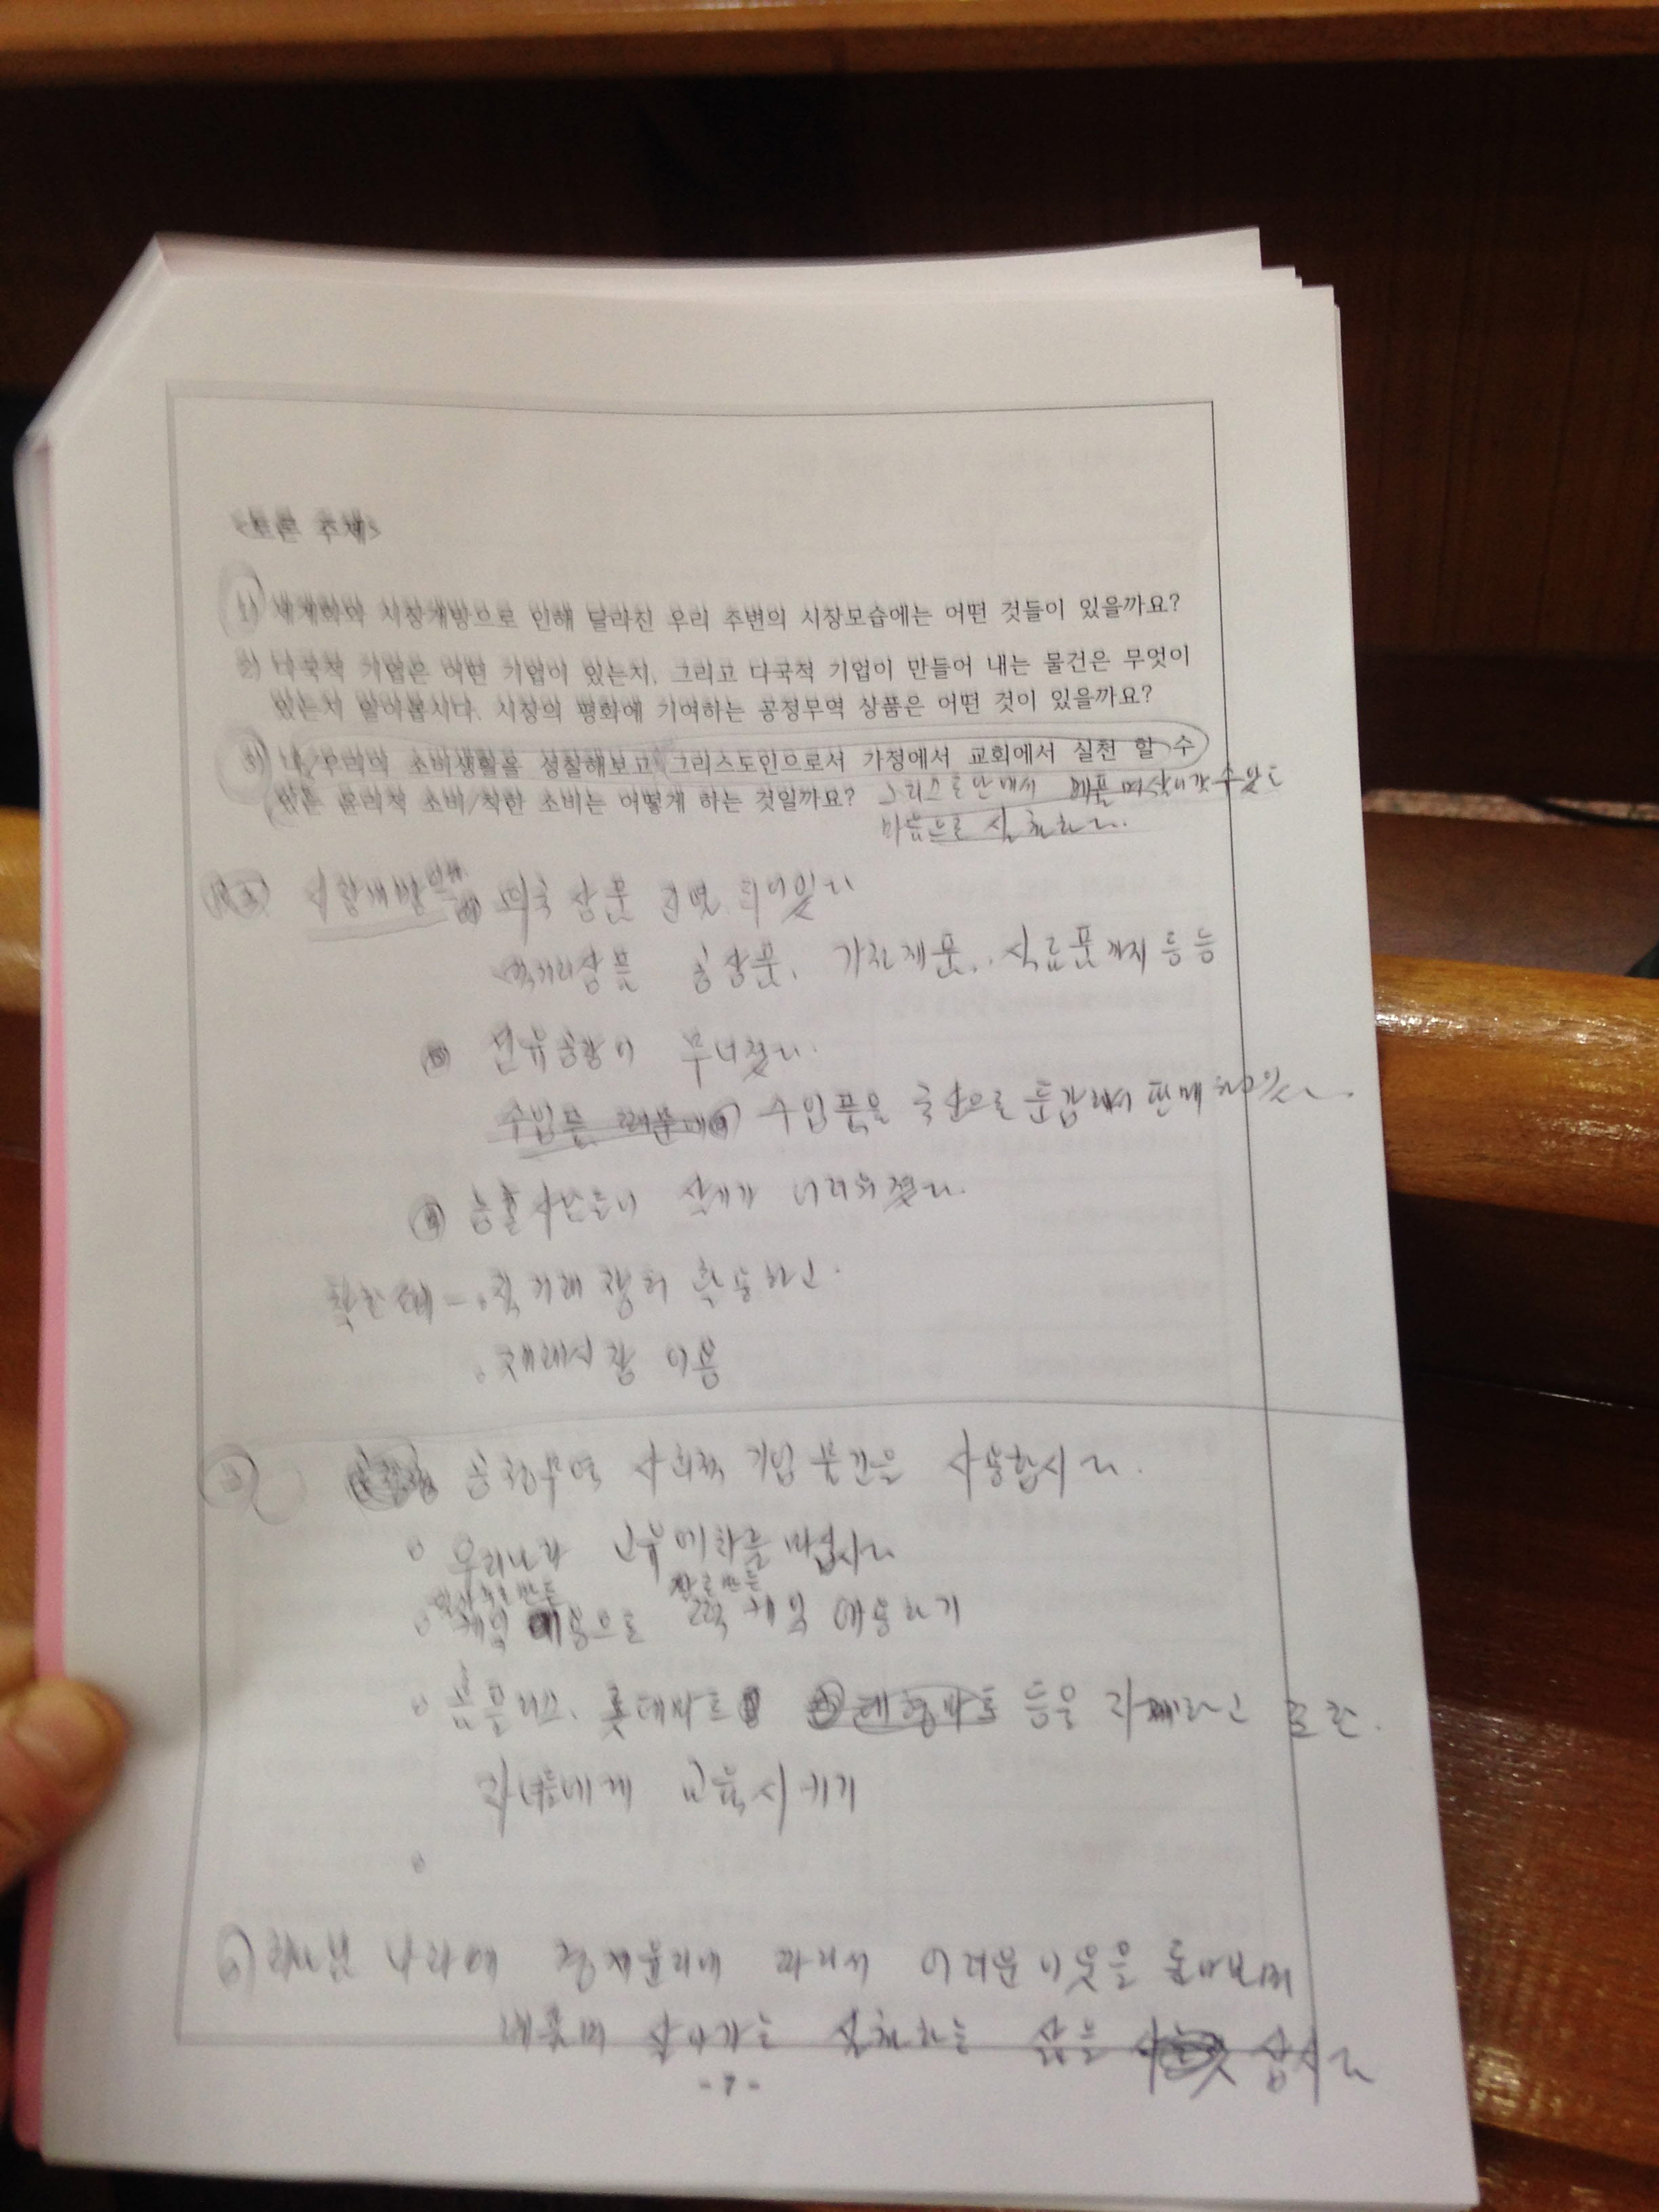 <토론 주제>
1) 세계화와 시장개방으로 인해 달라진 우리 주변의 시장모습에는 어떤 것들이 있을까요?
2) 다국적 기업은 어떤 기업이 있는지, 그리고 다국적 기업이 만들어 내는 물건은 무엇이
있는지 알아봅시다. 시장의 평화에 기여하는 공정무역 상품은 어떤 것이 있을까요?
3) 나/우리의 소비생활을 성찰해보고 그리스도인으로서 가정에서 교회에서 실천 할 수
있는 윤리적 소비/착한 소비는 어떻게 하는 것일까요? 그리스도안에서 베풀며살아갈수있는
마음으로 실천하다.
시장개방 외국 상품 되어있다
먹거리상품 공상품, 가전제품, 식료품까지 등등
섬유공장이 무너졌다.
수입품 수입품을 국산으로 둔갑해서 판매하고있다.
농촌사람들이 살기가 어려워졌다.
직거래 장터 활용하고.
재래시장 이용
공정무역 사회적 기업 물건을 사용합시다.
우리나라 고유에차를 마십시다
애용하기
홈플러스, 롯데마트 대형마트 등을 자제하고 또한.
자녀들에게 교육시키기
하나님 나라에 경제윤리에 따라서 어려운이웃을 돌아보며
베풀며 살아가는 실천하는 삶을 삽시다
- 7 -